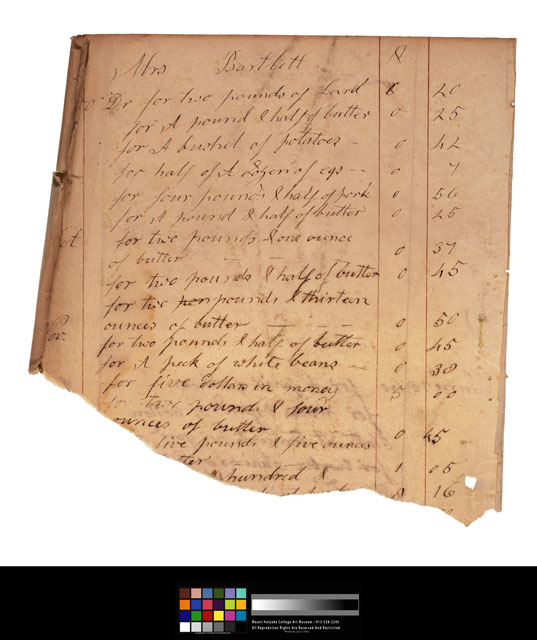 Mrs Bartlett
Dr for two pounds of Lard 0 20
for A pound & half of butter 0 25
for A bushel of potatoes - 0 42
for half of A dozen of egs - - 0 7
for four pounds & half of pork 0 56
for A pound & half of butter 0 25
for two pounds & one ounce
of butter - - 0 37
for two pounds & half of butter 0 45
for two pounds & thirteen
ounces of butter - - - 0 50
for two pounds & half of butter 0 45
for A peck of white beans 0 38
for five dollars in money 5 00
for two pounds & four
ounces of butter 0 45
five pounds & five ounces
tter 1 05
hundred &
16
Mount Holyoke College Art Museum / 413-538-2245
All Reproduction Rights Are Reserved And Restricted